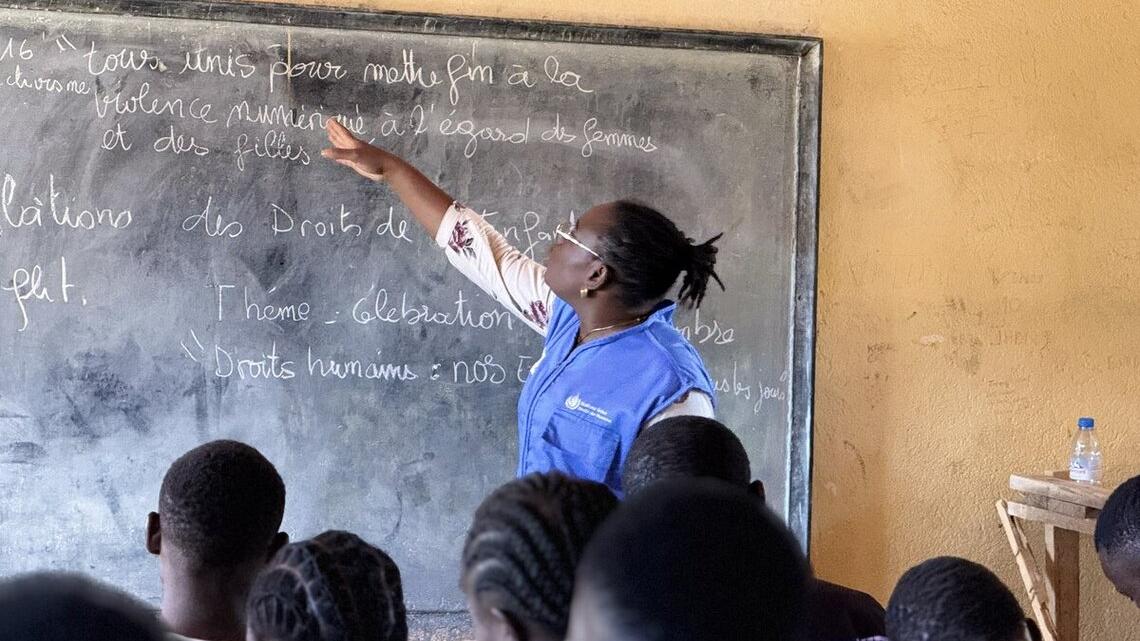 16 " tous unis pour mettre fin à la
violence numérique à l'égard des femmes
et des filles
lations des Droits de
pht.
Thème - Célébration mbre
"Droits humains : nos les jours